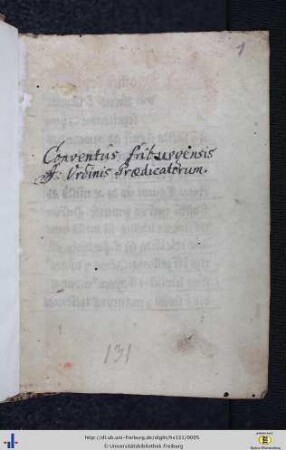 1
Conventus friburgensis
Ordinis Prædicatorum.
131
http://dl.ub.uni-freiburg.de/diglit/hs131/0005
© Universitätsbibliothek Freiburg